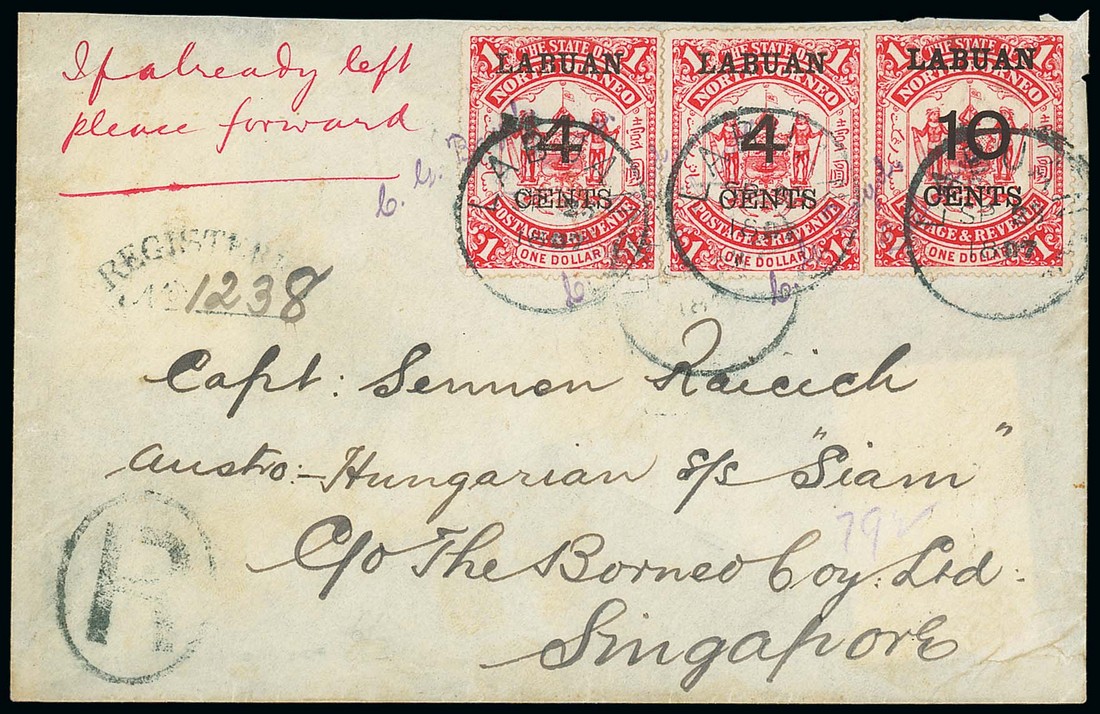 If already left
please forward
THE STATE OF
LABUAN
NORTH BORNEO
4
CENTS
POSTAGE & REVENUE
1 ONE DOLLAR 1
THE STATE OF
LABUAN
NORTH BORNEO
4
CENTS
POSTAGE & REVENUE
1 ONE DOLLAR 1
THE STATE OF
LABUAN
NORTH BORNEO
10
CENTS
POSTAGE & REVENUE
1 ONE DOLLAR 1
LABUAN
LABUAN
LABUAN
REGISTERED
No 1238
Capt: Sennen Raicich
Austro:-Hungarian s/s "Siam"
79
C/o The Borneo Coy: Ltd:
Singapore
R